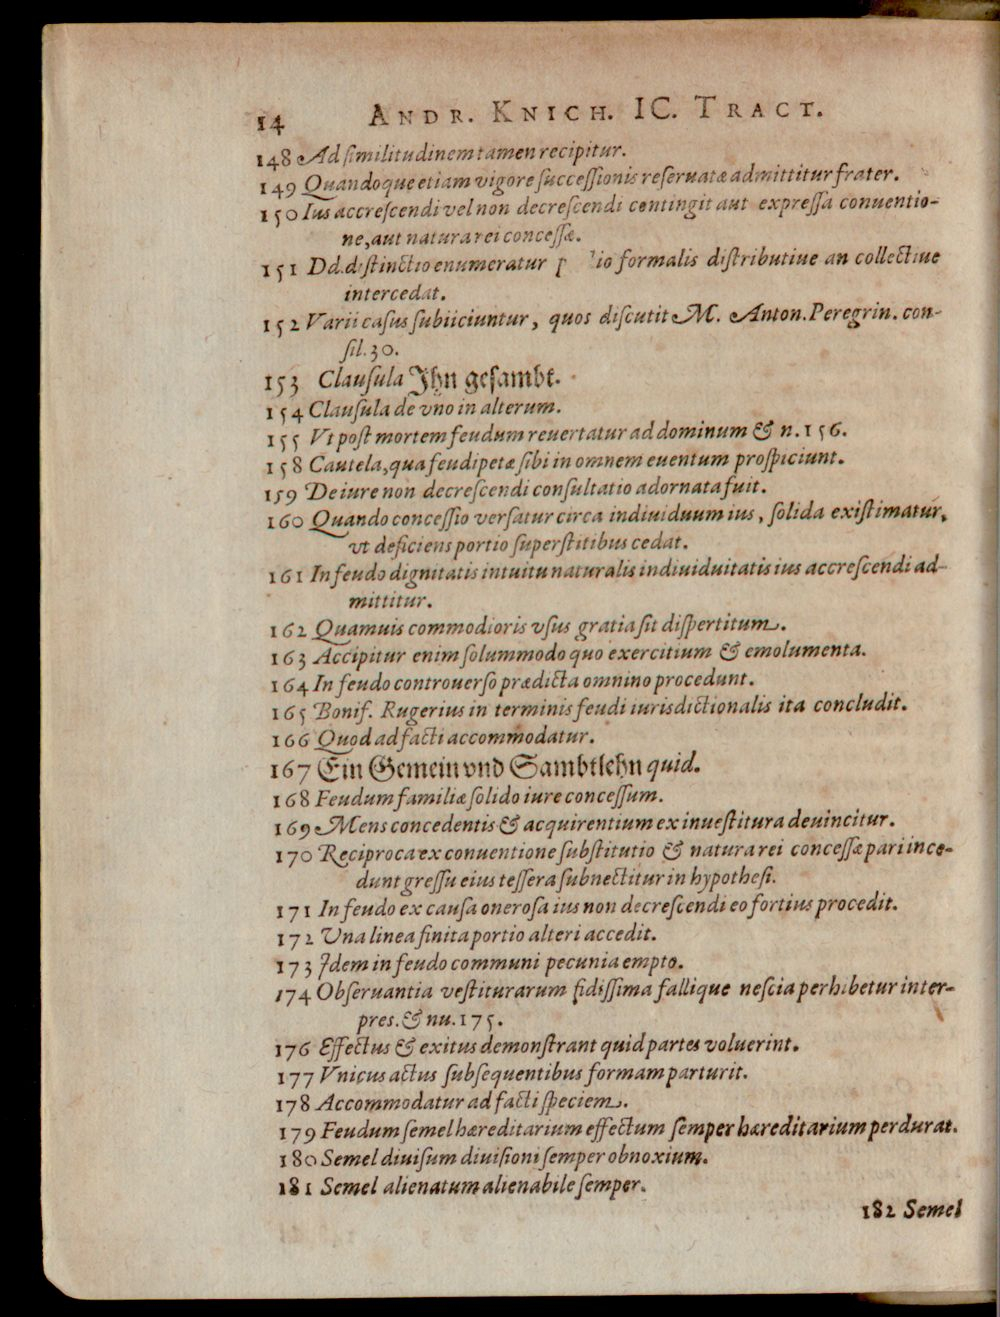 14 ANDR. KNICH. IC. TRACT.
148 Ad ſimilitudinem tamen recipitur.
149 Quandoque etiam vigore ſucceſſionis reſeruatæ admittitur frater.
150 Ius accreſcendi vel non decreſcendi contingit aut expreſſa conuentio-
ne, aut natura rei conceſſæ.
151 Dd. diſtinctio enumeratur io formalis diſtributiue an collectiue
intercedat.
152 Varii caſus ſubiiciuntur, quos diſcutit M. Anton. Peregrin. con-
ſil. 30.
153 Clauſula Jhn geſambt.
154 Clauſula de vno in alterum.
155 Vt poſt mortem feudum reuertatur ad dominum & n. 156.
158 Cautela, qua feudipetæ ſibi in omnem euentum proſpiciunt.
159 De iure non decreſcendi conſultatio adornata fuit.
160 Quando conceſſio verſatur circa indiuiduum ius, ſolida exiſtimatur,
vt deficiens portio ſuperſtitibus cedat.
161 In feudo dignitatis intuitu naturalis indiuiduitatis ius accreſcendi ad-
mittitur.
162 Quamuis commodioris vſus gratia ſit diſpertitum.
163 Accipitur enim ſolummodo quo exercitium & emolumenta.
164 In feudo controuerſo prædicta omnino procedunt.
165 Bonif. Rugerius in terminis feudi iurisdictionalis ita concludit.
166 Quod ad facti accommodatur.
167 Ein Gemein vnd Sambtlehn quid.
168 Feudum familiæ ſolido iure conceſſum.
169 Mens concedentis & acquirentium ex inueſtitura deuincitur.
170 Reciproca ex conuentione ſubſtitutio & natura rei conceſſæ pari ince-
dunt greſſu eius teſſera ſubnectitur in hypotheſi.
171 In feudo ex cauſa oneroſa ius non decreſcendi eo fortius procedit.
172 Una linea finita portio alteri accedit.
173 Idem in feudo communi pecunia empto.
174 Obſeruantia veſtiturarum fidiſſima fallique neſcia perhibetur inter-
pres. & nu. 175.
176 Effectus & exitus demonſtrant quid partes voluerint.
177 Vnicus actus ſubſequentibus formam parturit.
178 Accommodatur ad facti ſpeciem.
179 Feudum ſemel hæreditarium effectum ſemper hæreditarium perdurat.
180 Semel diuiſum diuiſioni ſemper obnoxium.
181 Semel alienatum alienabile ſemper.
182 Semel